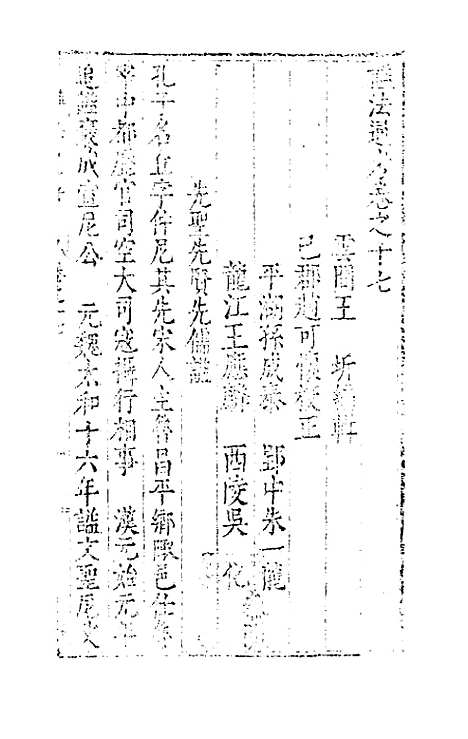 謚法通考卷之十七
雲間王 圻編輯
巴郡趙可懷校正
平湖孫成泰 郢中朱一龍
龍江王應麟 西陵吳 化
先聖先賢先儒謚
孔子名丘字仲尼其先宋人生魯昌平鄉陬邑仕魯
宰中都歷官司空大司寇攝行相事 漢元始元年
追謚褒成宣尼公 元魏太和十六年謚文聖尼父